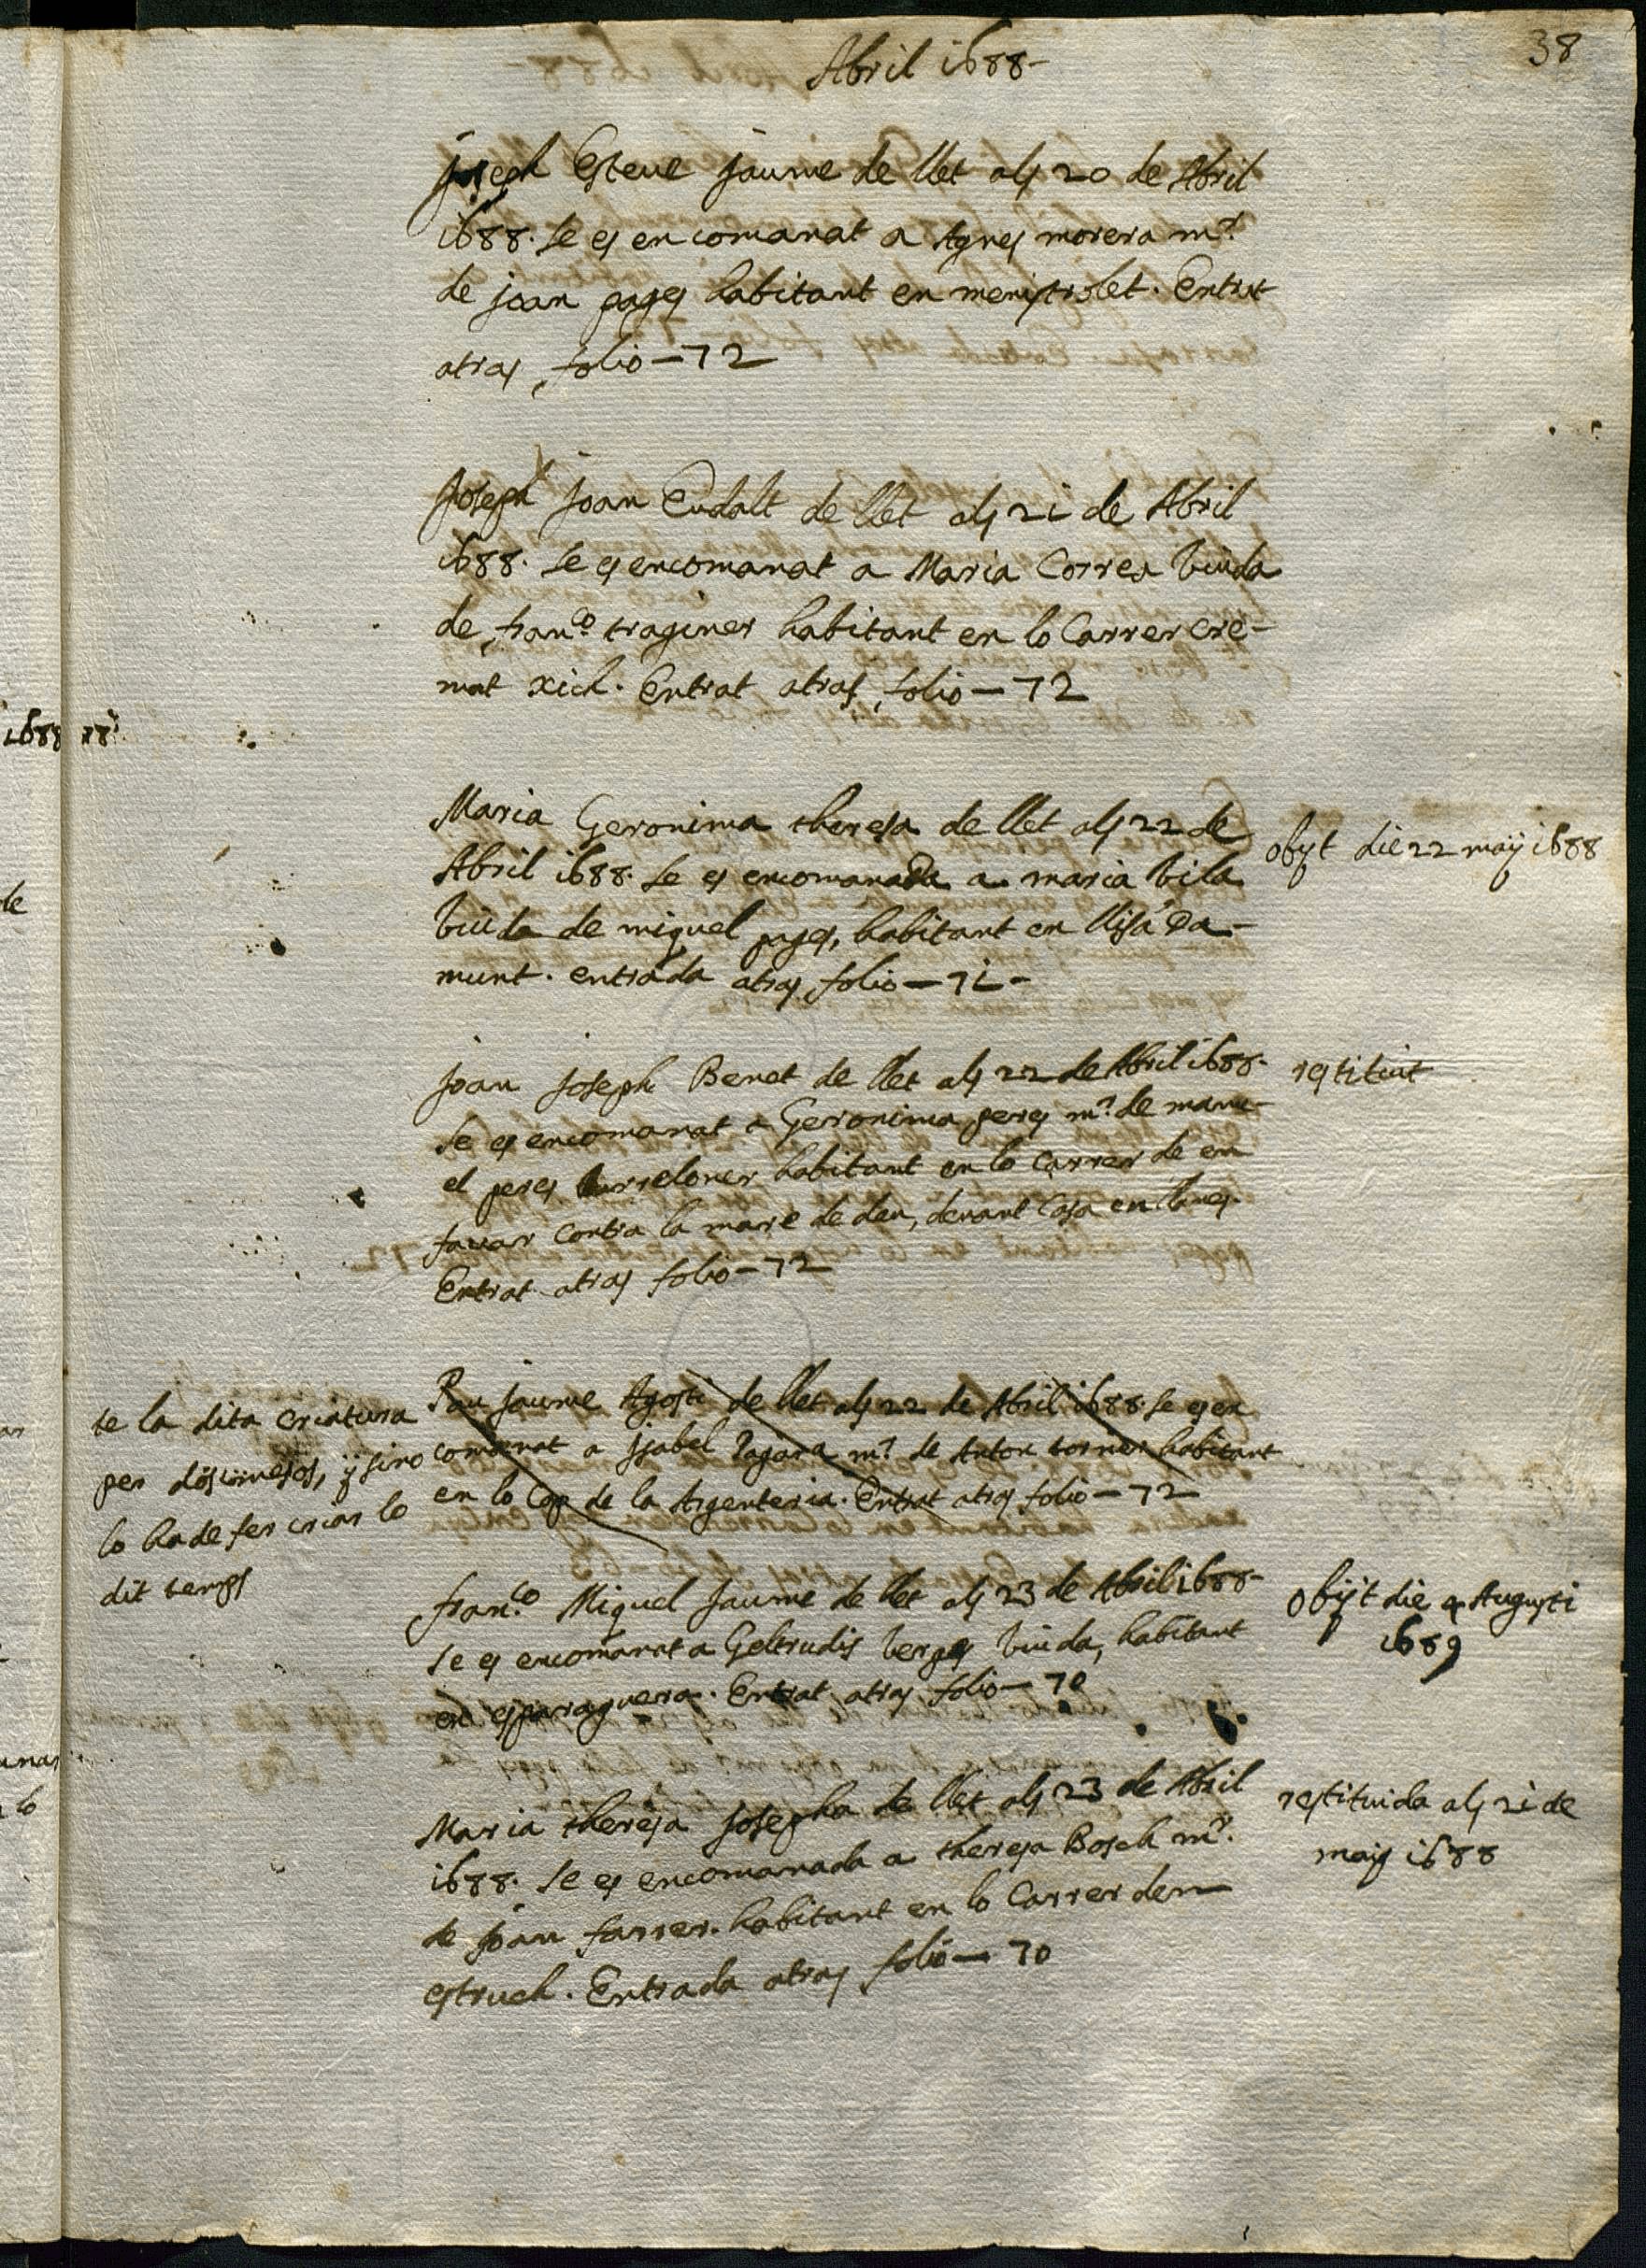 38
Abril 1688-
joseph Esteue jaume de llet als 20 de Abril
1688. se es encomanat a Agnes morera mr.
de joan pages habitant en menistrolet. Entrat
atras folio-72
Joseph Joan Eudalt de llet als 21 de Abril
1688. se es encomanat a Maria Correa viuda
de franco. traginer habitant en lo Carrer cre-
mat xich. Entrat atras folio-72
Maria Geronima theresa de llet als 22 de
Abril 1688. se es encomanada a maria vila
viuda de miquel pages, habitant en llisá Da-
munt. entrada atras folio-71-
obyt die 22 maij 1688
joan Joseph Benet de llet als 22 de Abril 1688.
se es encomanat a Geronima peres mr. de manu-
el peres barreloner habitant en lo carrer de en
fauar contra la mare de deu, denant Casa en llunes.
Entrat atras folio-72
restituit
te la dita criatura
per dos mesos, y sino
lo ha de fer criar lo
dit temps
Pau jaume Agosti de llet als 22 de Abril 1688. se es en
comanat a Isabel Pagara mr. de Anton torner habitant
en lo Cap de la Argenteria. Entrat atras folio-72
franco. Miquel Jaume de llet als 23 de Abril 1688-
se es encomanat a Geltrudis verges viuda, habitant
en esparraguera. Entrat atras folio-70
Obijt die 4 Augusti
1689
Maria theresa Josepha de llet als 23 de Abril
1688. se es encomanada a theresa Bosch mr.
de Joan farrer. habitant en lo Carrer den
estruch. Entrada atras folio-70
restituida als 21 de
maig 1688